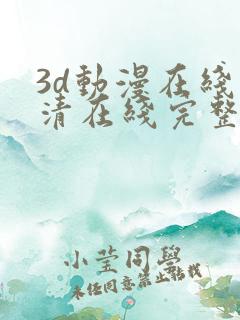 3d動漫在綫
清在綫完整
小莹同學
未經同意禁止轉載